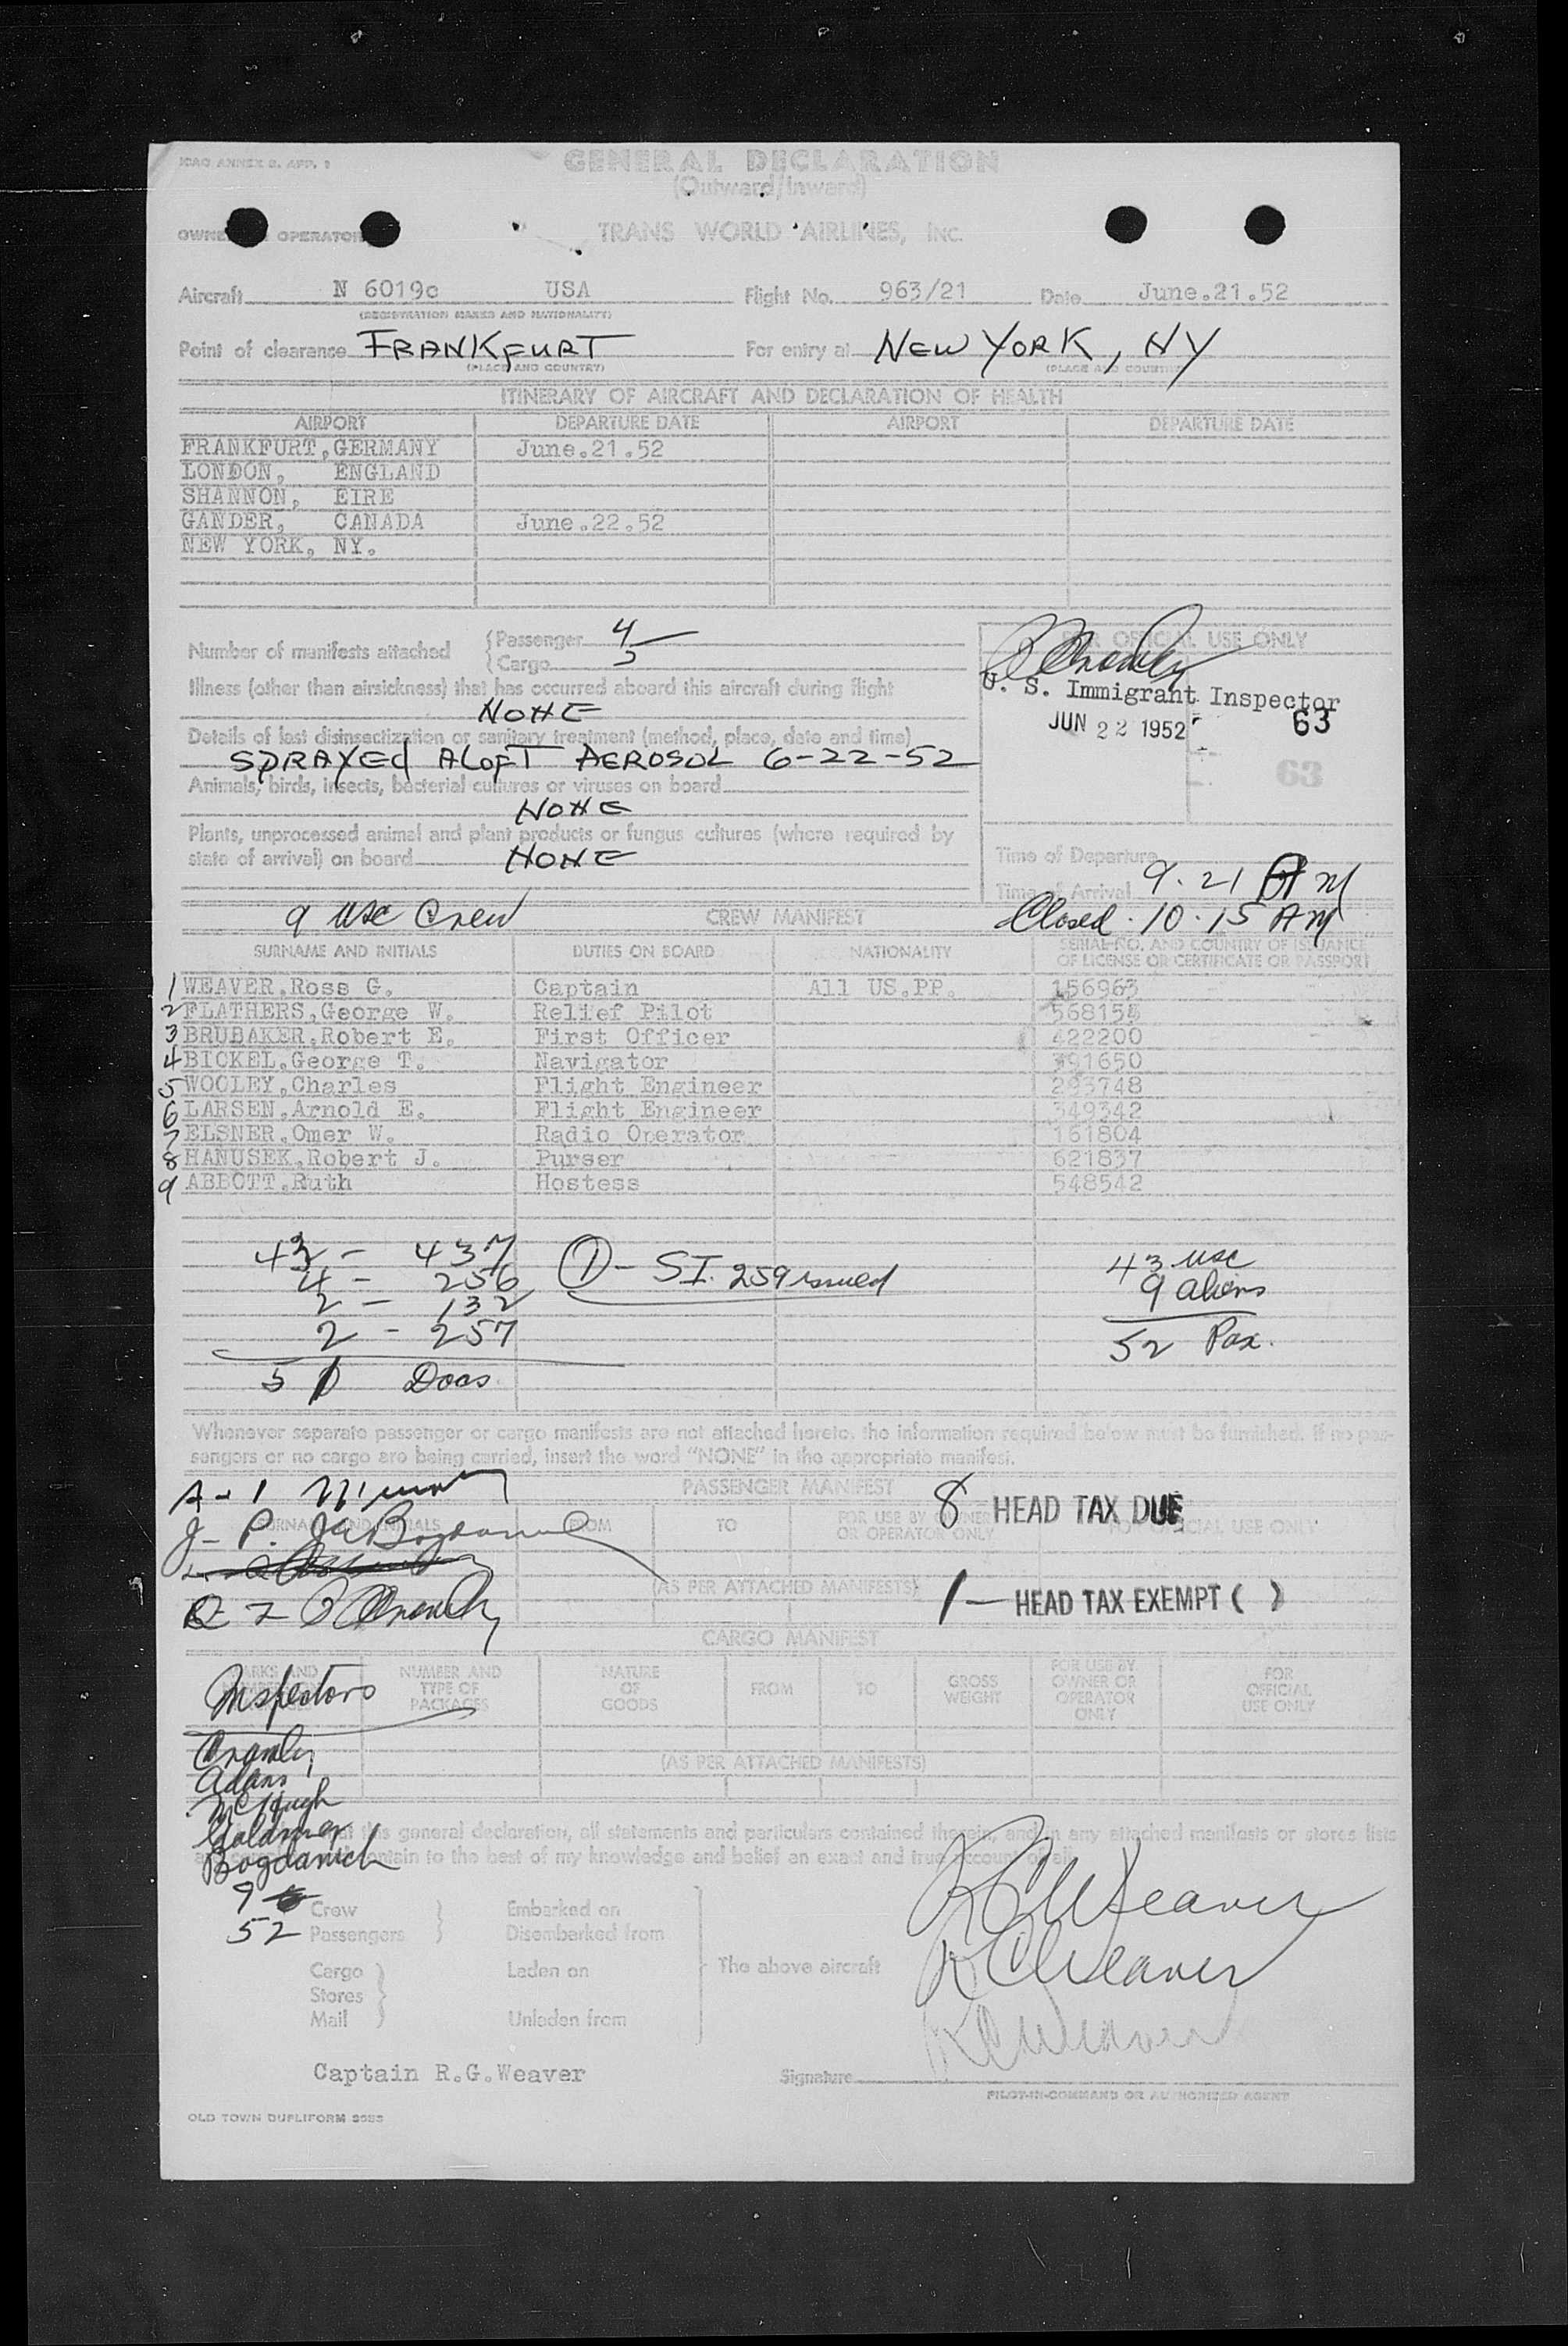 ICAO ANNEX 9. APP. 1
GENERAL DECLARATION
(Outward/Inward)
OWNER OPERATOR TRANS WORLD AIRLINES, INC.
Aircraft N 6019c USA Flight No. 963/21 Date June.21.52
(REGISTRATION MARKS AND NATIONALITY)
Point of clearance FRANKFURT For entry at NEW YORK, NY
(PLACE AND COUNTRY) (PLACE AND COUNTRY)
ITINERARY OF AIRCRAFT AND DECLARATION OF HEALTH
AIRPORT DEPARTURE DATE AIRPORT DEPARTURE DATE
FRANKFURT,GERMANY June.21.52
LONDON, ENGLAND
SHANNON, EIRE
GANDER, CANADA June.22.52
NEW YORK, NY.
Number of manifests attached Passenger 4
Cargo 5
FOR OFFICIAL USE ONLY
Illness (other than airsickness) that has occurred aboard this aircraft during flight
NONE
U. S. Immigrant Inspector
JUN 22 1952 63
63
Details of last disinsectization or sanitary treatment (method, place, date and time)
SPRAYEd ALOFT AEROSOL 6-22-52
Animals, birds, insects, bacterial cultures or viruses on board
NONE
Plants, unprocessed animal and plant products or fungus cultures (where required by
state of arrival) on board NONE
Time of Departure
Time of Arrival 9.21 AM
9 USC Crew CREW MANIFEST Closed . 10.15 AM
SURNAME AND INITIALS DUTIES ON BOARD NATIONALITY SERIAL NO. AND COUNTRY OF ISSUANCE
OF LICENSE OR CERTIFICATE OR PASSPORT
1 WEAVER,Ross G. Captain All US.PP. 156963
2 FLATHERS,George W. Relief Pilot 568154
3 BRUBAKER,Robert E. First Officer 422200
4 BICKEL,George T. Navigator 391650
5 WOOLEY,Charles Flight Engineer 293748
6 LARSEN,Arnold E. Flight Engineer 349342
7 ELSNER,Omer W. Radio Operator 161804
8 HANUSEK,Robert J. Purser 621837
9 ABBOTT,Ruth Hostess 548542
43 - 437 1 - SI. 259 issued 43 USC
4 - 256 9 aliens
2 - 132
2 - 257 52 Pax.
51 Docs
Whenever separate passenger or cargo manifests are not attached hereto, the information required below must be furnished. If no pas-
sengers or no cargo are being carried, insert the word "NONE" in the appropriate manifest.
A-1
PASSENGER MANIFEST
8 HEAD TAX DUE
J- P.
SURNAME AND INITIALS FROM TO FOR USE BY OWNER
OR OPERATOR ONLY FOR OFFICIAL USE ONLY
(AS PER ATTACHED MANIFESTS)
1 - HEAD TAX EXEMPT ( )
CARGO MANIFEST
Inspectors
MARKS AND NUMBER AND
TYPE OF
PACKAGES NATURE
OF
GOODS FROM TO GROSS
WEIGHT FOR USE BY
OWNER OR
OPERATOR
ONLY FOR
OFFICIAL
USE ONLY
Adams
McHugh
Goldman
Bogdanich
(AS PER ATTACHED MANIFESTS)
this general declaration, all statements and particulars contained therein, and in any attached manifests or stores lists
contain to the best of my knowledge and belief an exact and true account of all
9 Crew Embarked on
52 Passengers Disembarked from
Cargo Laden on
Stores
Mail Unladen from
The above aircraft
RGWeaver
RGWeaver
RGWeaver
Captain R.G.Weaver Signature
PILOT-IN-COMMAND OR AUTHORIZED AGENT
OLD TOWN DUPLIFORM